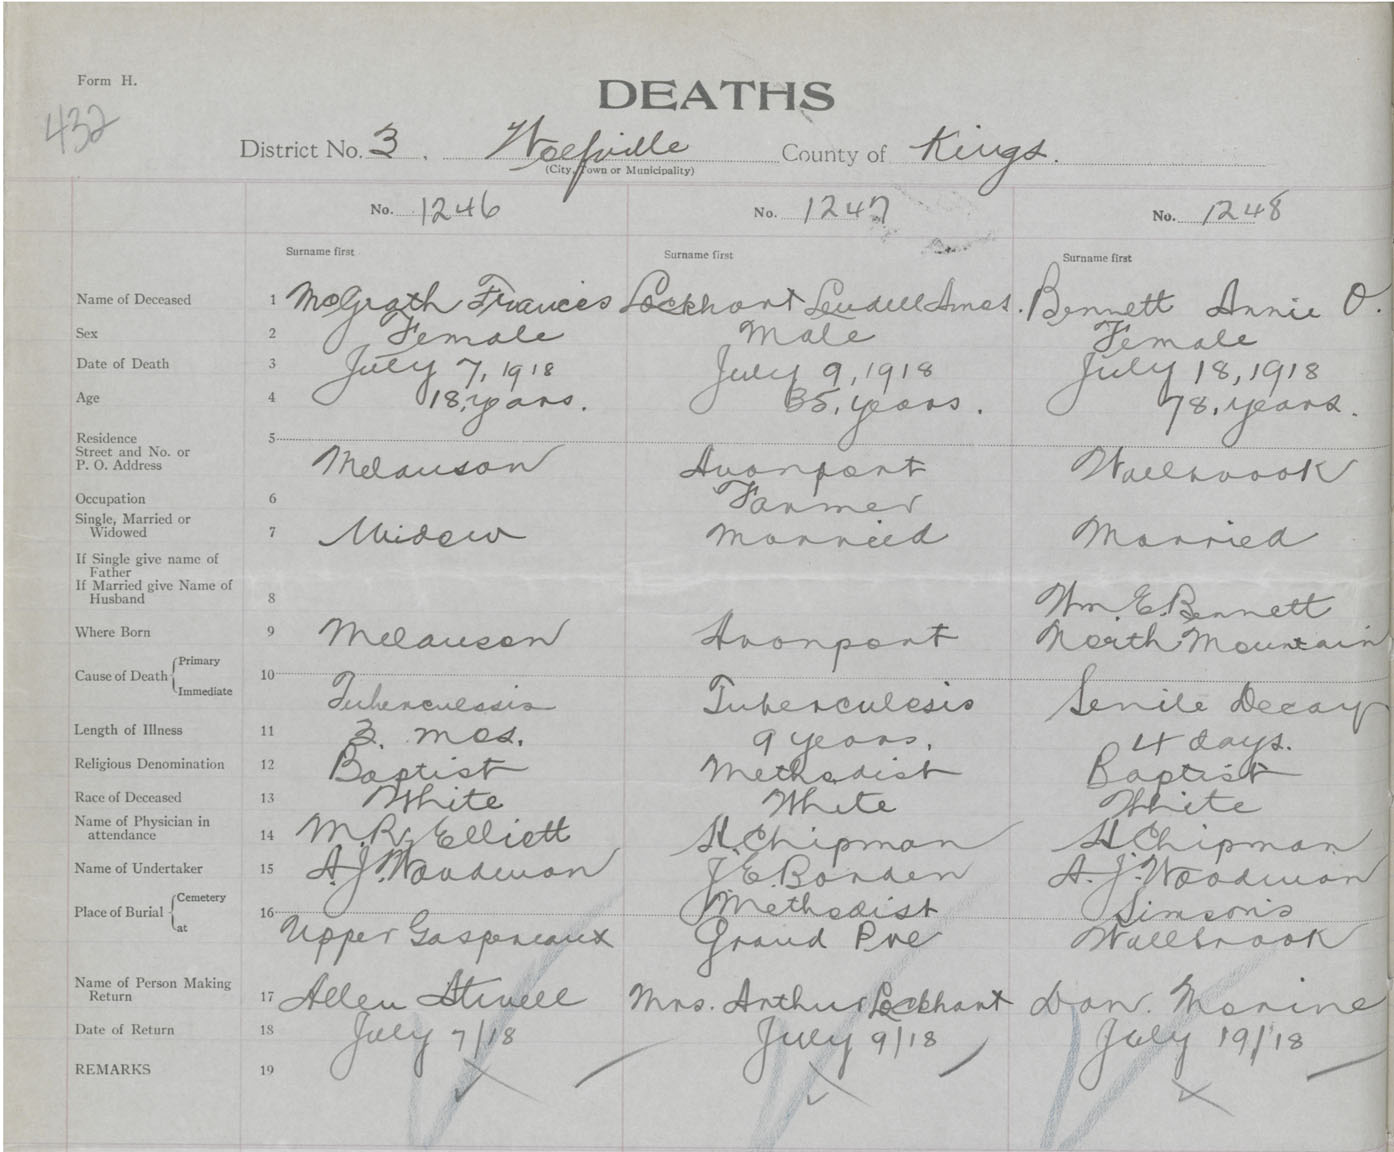 Form H.
DEATHS
432
District No. 3. Wolfville County of Kings.
(City, Town or Municipality)
No. 1246 No. 1247 No. 1248
Surname first Surname first Surname first
Name of Deceased 1 McGrath Frances Lockhart Leudell Amos. Bennett Annie O.
Sex 2 Female Male Female
Date of Death 3 July 7, 1918 July 9, 1918 July 18, 1918
Age 4 18, years. 35, years. 78, years.
Residence 5
Street and No. or
P. O. Address Melanson Avonport Wallbrook
Occupation 6 Farmer
Single, Married or
Widowed 7 Widow Married Married
If Single give name of
Father
If Married give Name of
Husband 8 Wm. E. Bennett
Where Born 9 Melanson Avonport North Mountain
Cause of Death Primary 10
Immediate Tuberculosis Tuberculosis Senile Decay
Length of Illness 11 3. mos. 9 years. 4 days.
Religious Denomination 12 Baptist Methodist Baptist
Race of Deceased 13 White White White
Name of Physician in
attendance 14 M.R. Elliott H. Chipman H Chipman
Name of Undertaker 15 A.J. Woodman J.E. Borden A.J. Woodman
Place of Burial Cemetery 16 Methodist Simson's
at Upper Gaspereaux Grand Pre Wallbrook
Name of Person Making
Return 17 Allen Stivell Mrs. Arthur Lockhart Dan. Morine
Date of Return 18 July 7/18 July 9/18 July 19/18
REMARKS 19